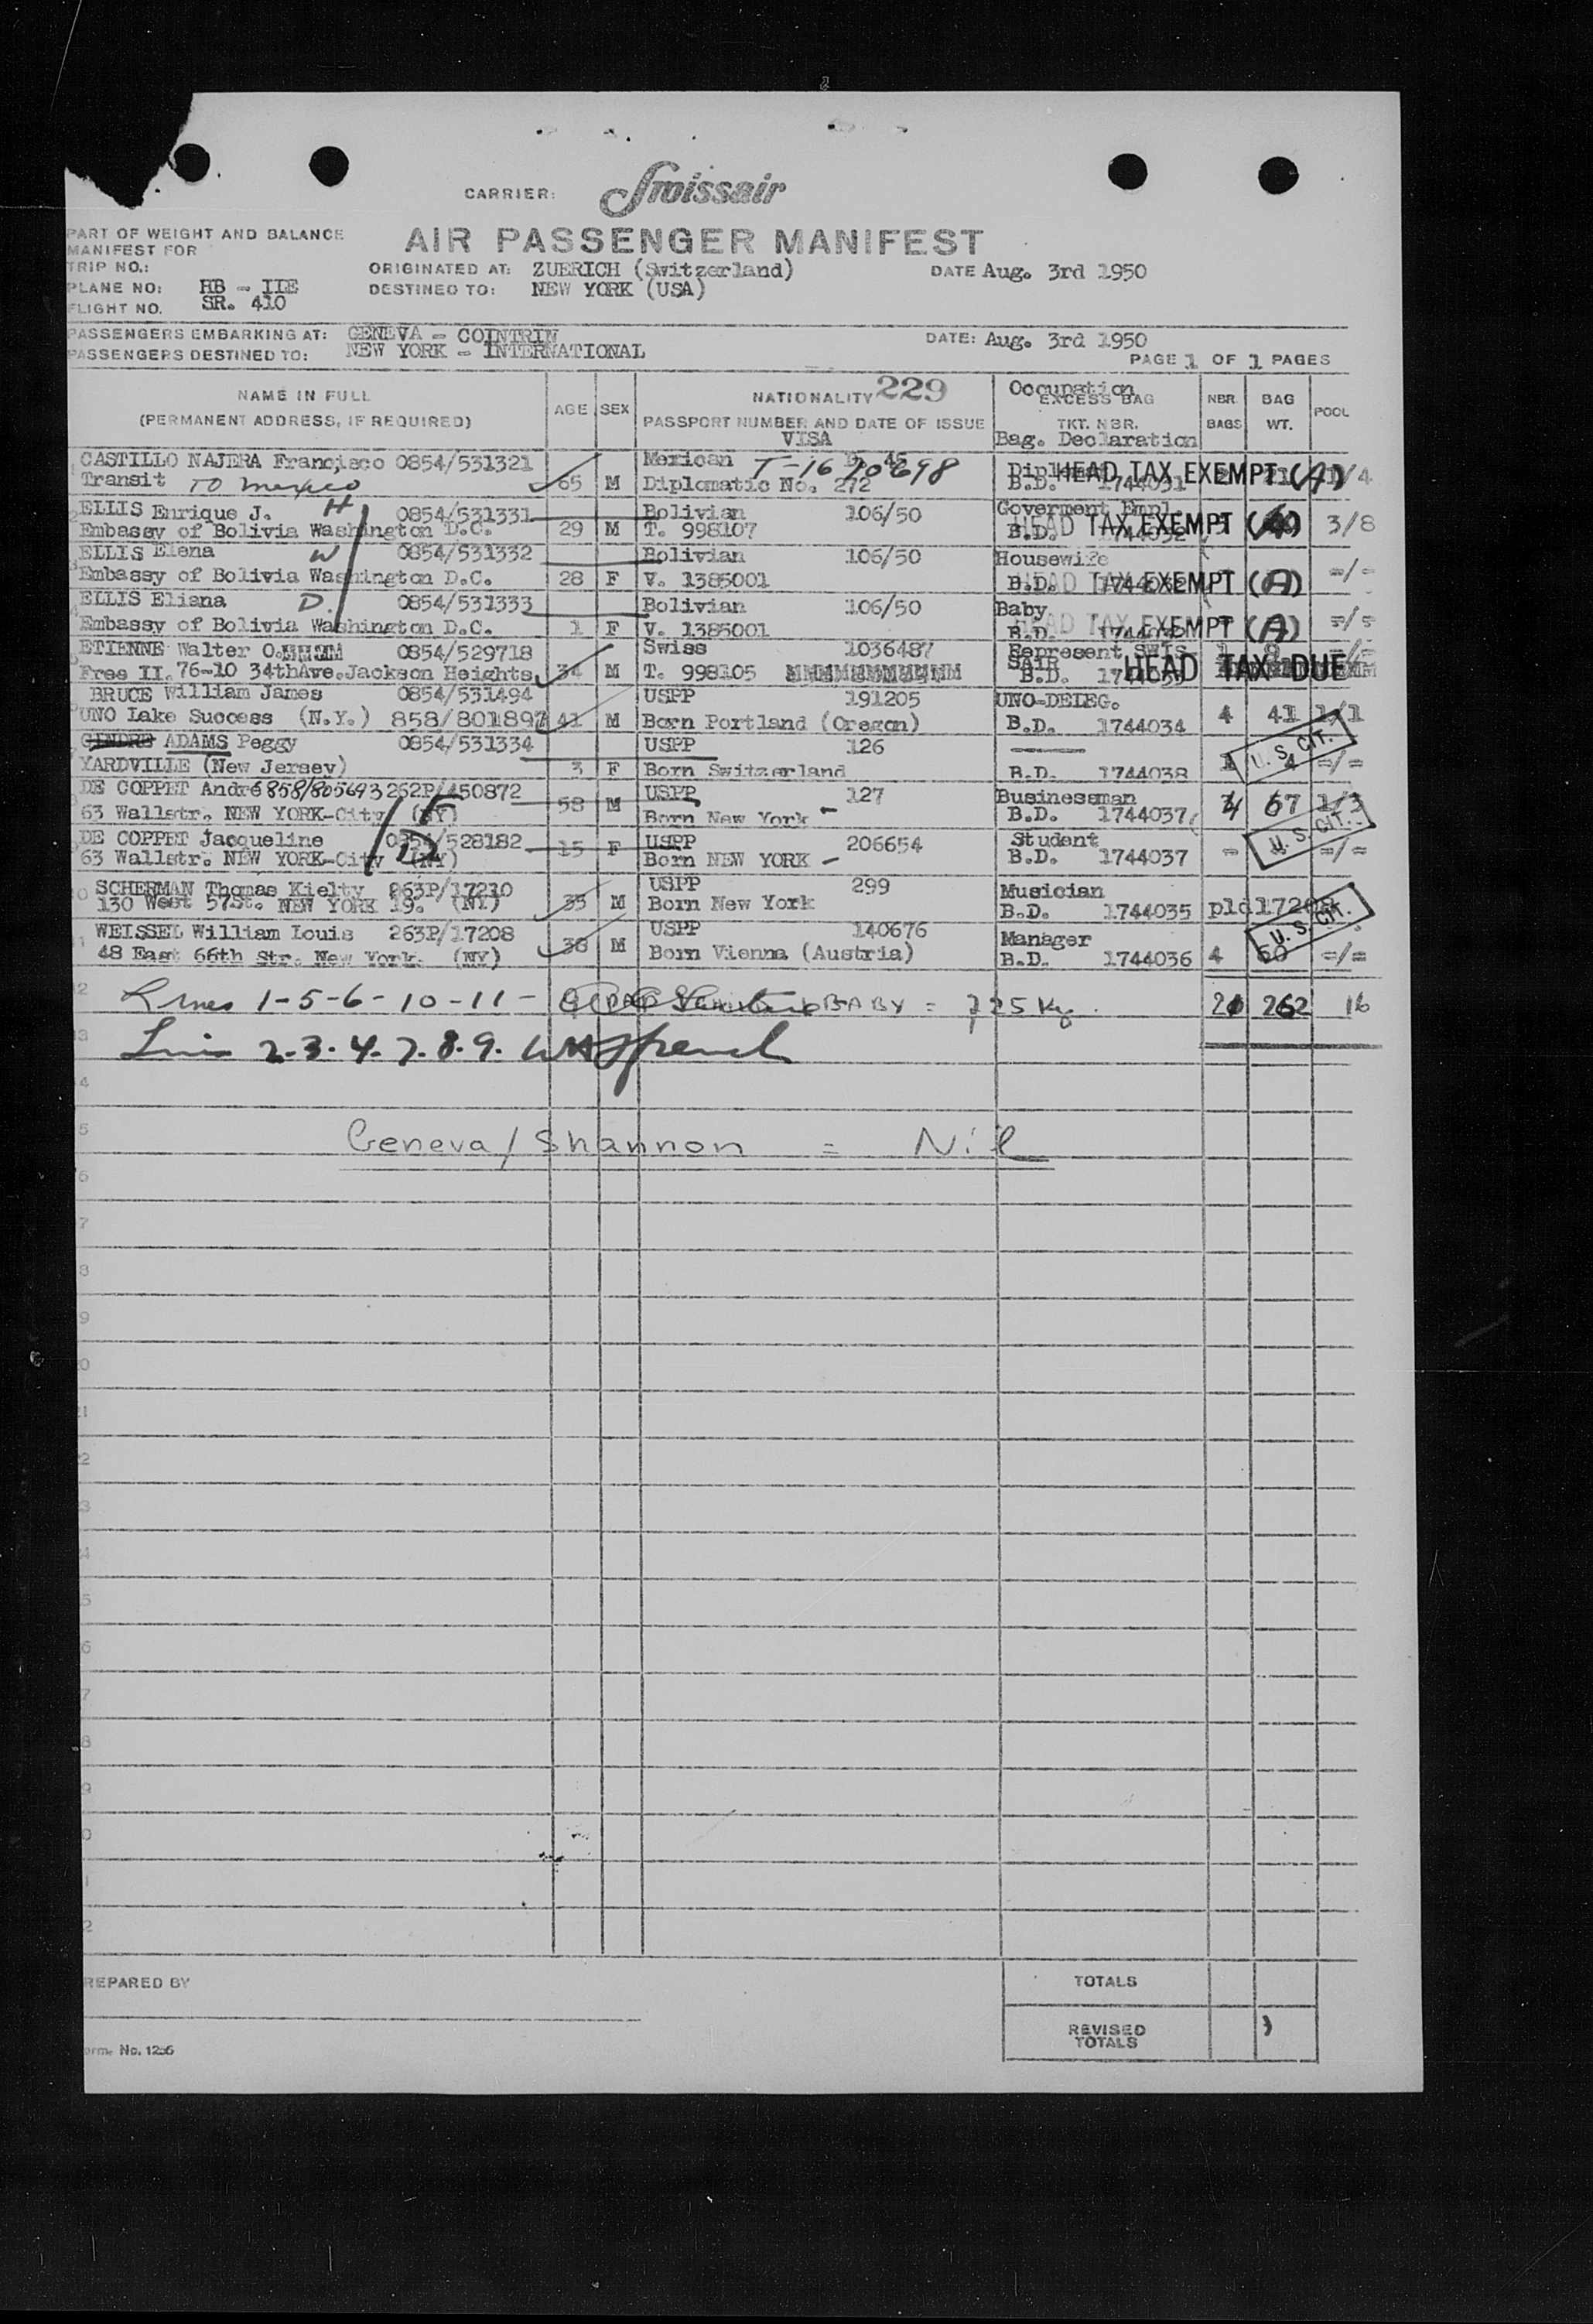 CARRIER: Swissair
PART OF WEIGHT AND BALANCE
MANIFEST FOR
AIR PASSENGER MANIFEST
TRIP NO.:
ORIGINATED AT: ZUERICH (Switzerland)
DATE Aug. 3rd 1950
PLANE NO: HB - IIE
DESTINED TO: NEW YORK (USA)
FLIGHT NO. SR. 410
PASSENGERS EMBARKING AT: GENEVA - COINTRIN
DATE: Aug. 3rd 1950
PASSENGERS DESTINED TO: NEW YORK - INTERNATIONAL
PAGE 1 OF 1 PAGES
NAME IN FULL
(PERMANENT ADDRESS, IF REQUIRED)
AGE SEX
NATIONALITY 229
PASSPORT NUMBER AND DATE OF ISSUE
VISA
Occupation
EXCESS BAG
TKT. NBR.
Bag. Declaration
NBR. BAGS
BAG WT.
POOL
CASTILLO NAJERA Francisco 0854/531321 Mexican
Transit TO mexico 65 M Diplomatic No. 272 B.D. 1744031 HEAD TAX EXEMPT (A)
ELLIS Enrique J. H 0854/531331 Bolivian 106/50 Goverment Empl.
Embassy of Bolivia Washington D.C. 29 M T. 998107 B.D. HEAD TAX EXEMPT 3/8
ELLIS Elena W 0854/531332 Bolivian 106/50 Housewife
Embassy of Bolivia Washington D.C. 28 F V. 1385001 B.D. HEAD TAX EXEMPT (A) =/=
ELLIS Eliana D. 0854/531333 Bolivian 106/50 Baby
Embassy of Bolivia Washington D.C. 1 F V. 1385001 B.D. HEAD TAX EXEMPT (A) =/=
ETIENNE Walter O. 0854/529718 Swiss 1036487 Represent SWIS-
Free II. 76-10 34thAve.Jackson Heights 34 M T. 998105 SAIR B.D. HEAD TAX DUE
BRUCE William James 0854/531494 USPP 191205 UNO-DELEG.
UNO Lake Success (N.Y.) 858/801897 41 M Born Portland (Oregon) B.D. 1744034 4 41 1/1
GINDRE ADAMS Peggy 0854/531334 USPP 126
YARDVILLE (New Jersey) 3 F Born Switzerland B.D. 1744038 1 4 =/= U. S. CIT.
DE COPPET André 858/805693 262P/450872 USPP 127 Businessman
63 Wallstr. NEW YORK-City (NY) F 58 M Born New York - B.D. 1744037 67 1/3
DE COPPET Jacqueline 0854/528182 USPP 206654 Student
63 Wallstr. NEW YORK-City (NY) D 15 F Born NEW YORK - B.D. 1744037 - =/= U. S. CIT.
SCHERMAN Thomas Kielty 263P/17210 USPP 299 Musician
130 West 57St. NEW YORK 19. (NY) 33 M Born New York B.D. 1744035 pld17208
WEISSEL William Louis 263P/17208 USPP 140676 Manager
48 East 66th Str. New York. (NY) 38 M Born Vienna (Austria) B.D. 1744036 4 60 =/= U. S. CIT.
Lines 1-5-6-10-11- BABY = 725 Kg. 262 16
Lines 2.3.4.7.8.9.
Geneva / Shannon = Nil
REPARED BY
TOTALS
REVISED
TOTALS
orm. No. 1256